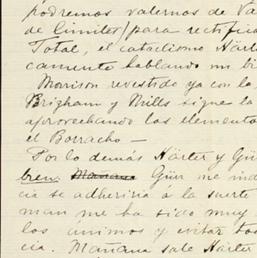 podremos valernos de Va
de límites/para rectific
Total, el cataclismo Härte
camente hablando mi bi
Morrison revestido ya con la
Brigham y Mills sigue la
aprovechando los elemento
el Borracho —
Por lo demás Härter y Gür
bien. Mañana Gürr me ind
cia se adheriría á la suerte
man me ha sido muy
los animos y evitar to
cia. Mañana sale Härter